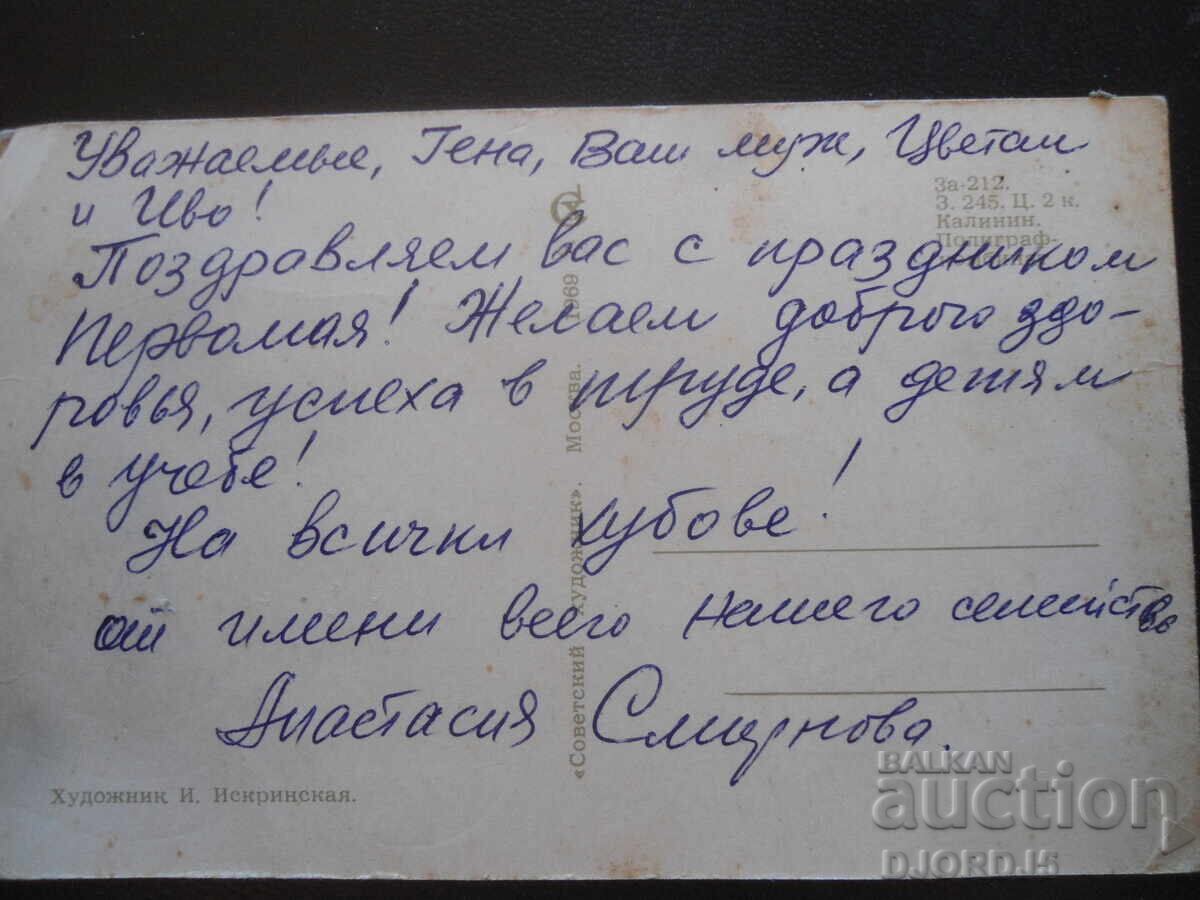 Уважаемые, Гена, Ваш муж, Цветан
и Иво!
Поздравляем вас с праздником
Первомая! Желаем доброго здо-
ровья, успеха в труде, а детям
в учебе!
На всички хубове!
от имени всего нашего семейства
Анастасия Смирнова.
За-212.
З. 245. Ц. 2 к.
Калинин.
Полиграф-
«Советский художник». Москва. 1969
Художник И. Искринская.
BALKAN
auction
DJORDJ5